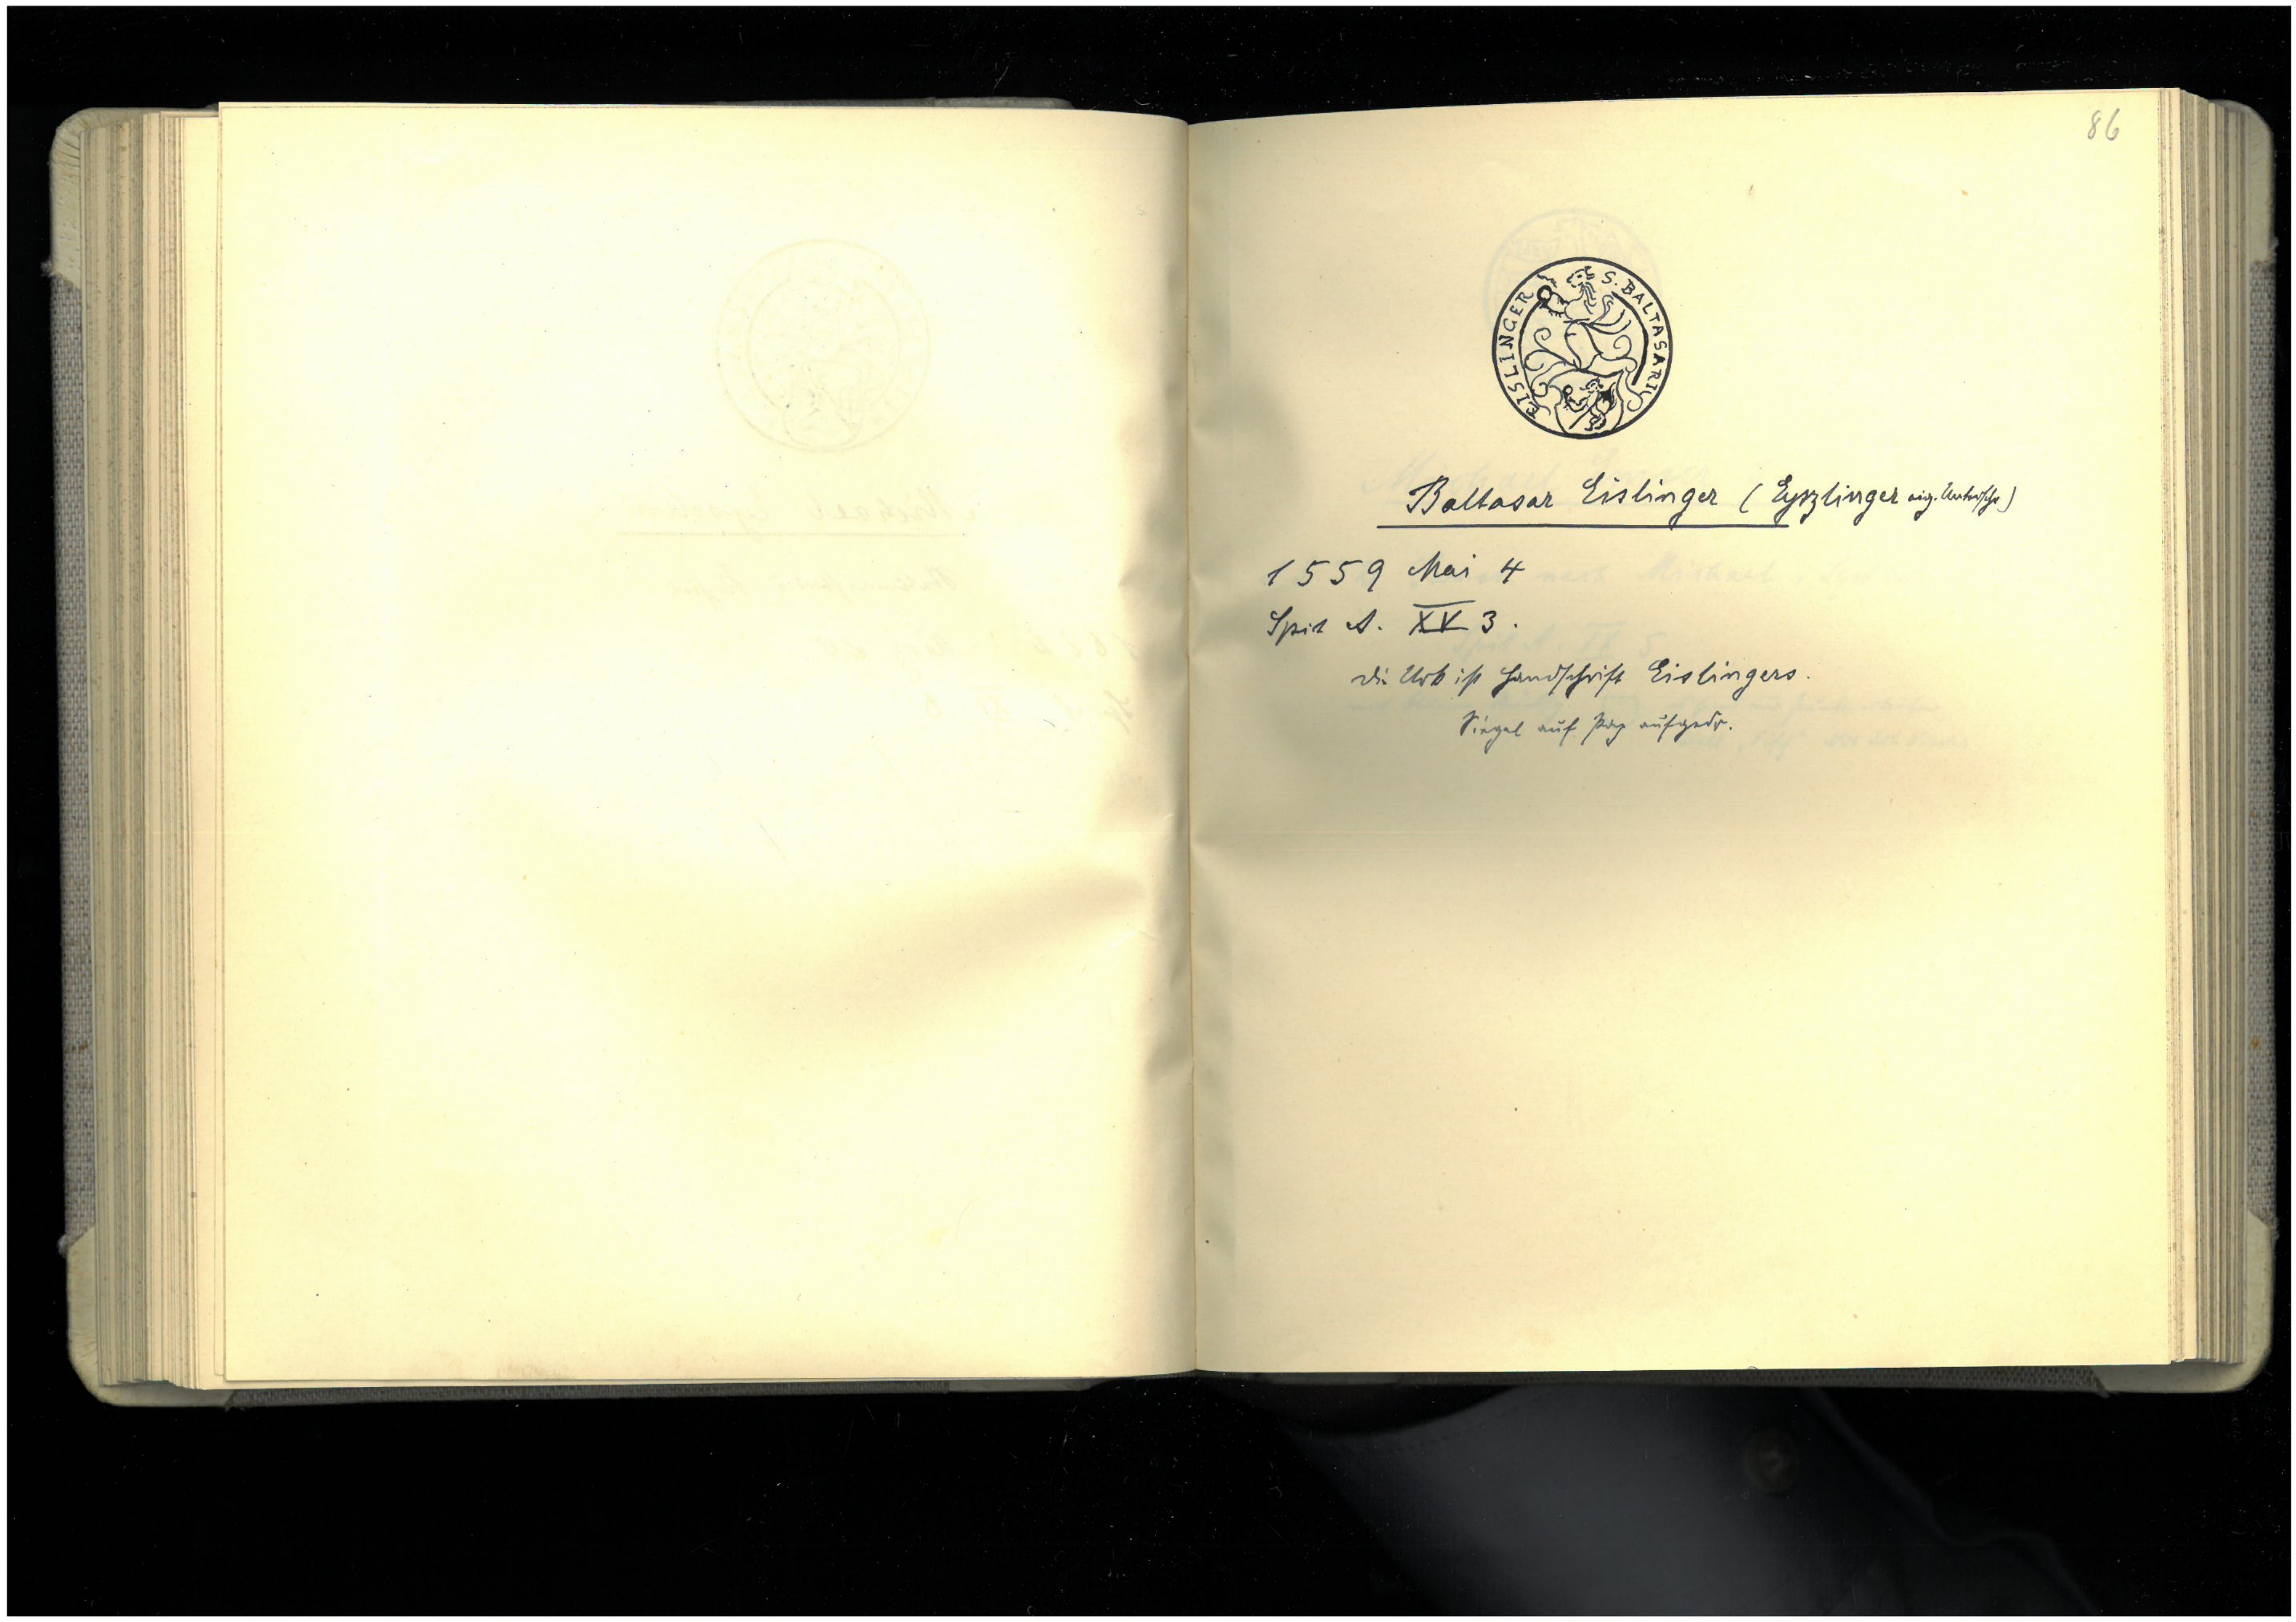 86
S. BALTASARI EISLINGER
Baltasar Eislinger (Eyszlinger eig. Unterschr)
1559 Mai 4
Spit A. XV 3.
die Urk ist Handschrift Eislingers.
Siegel auf Pap aufgedr.